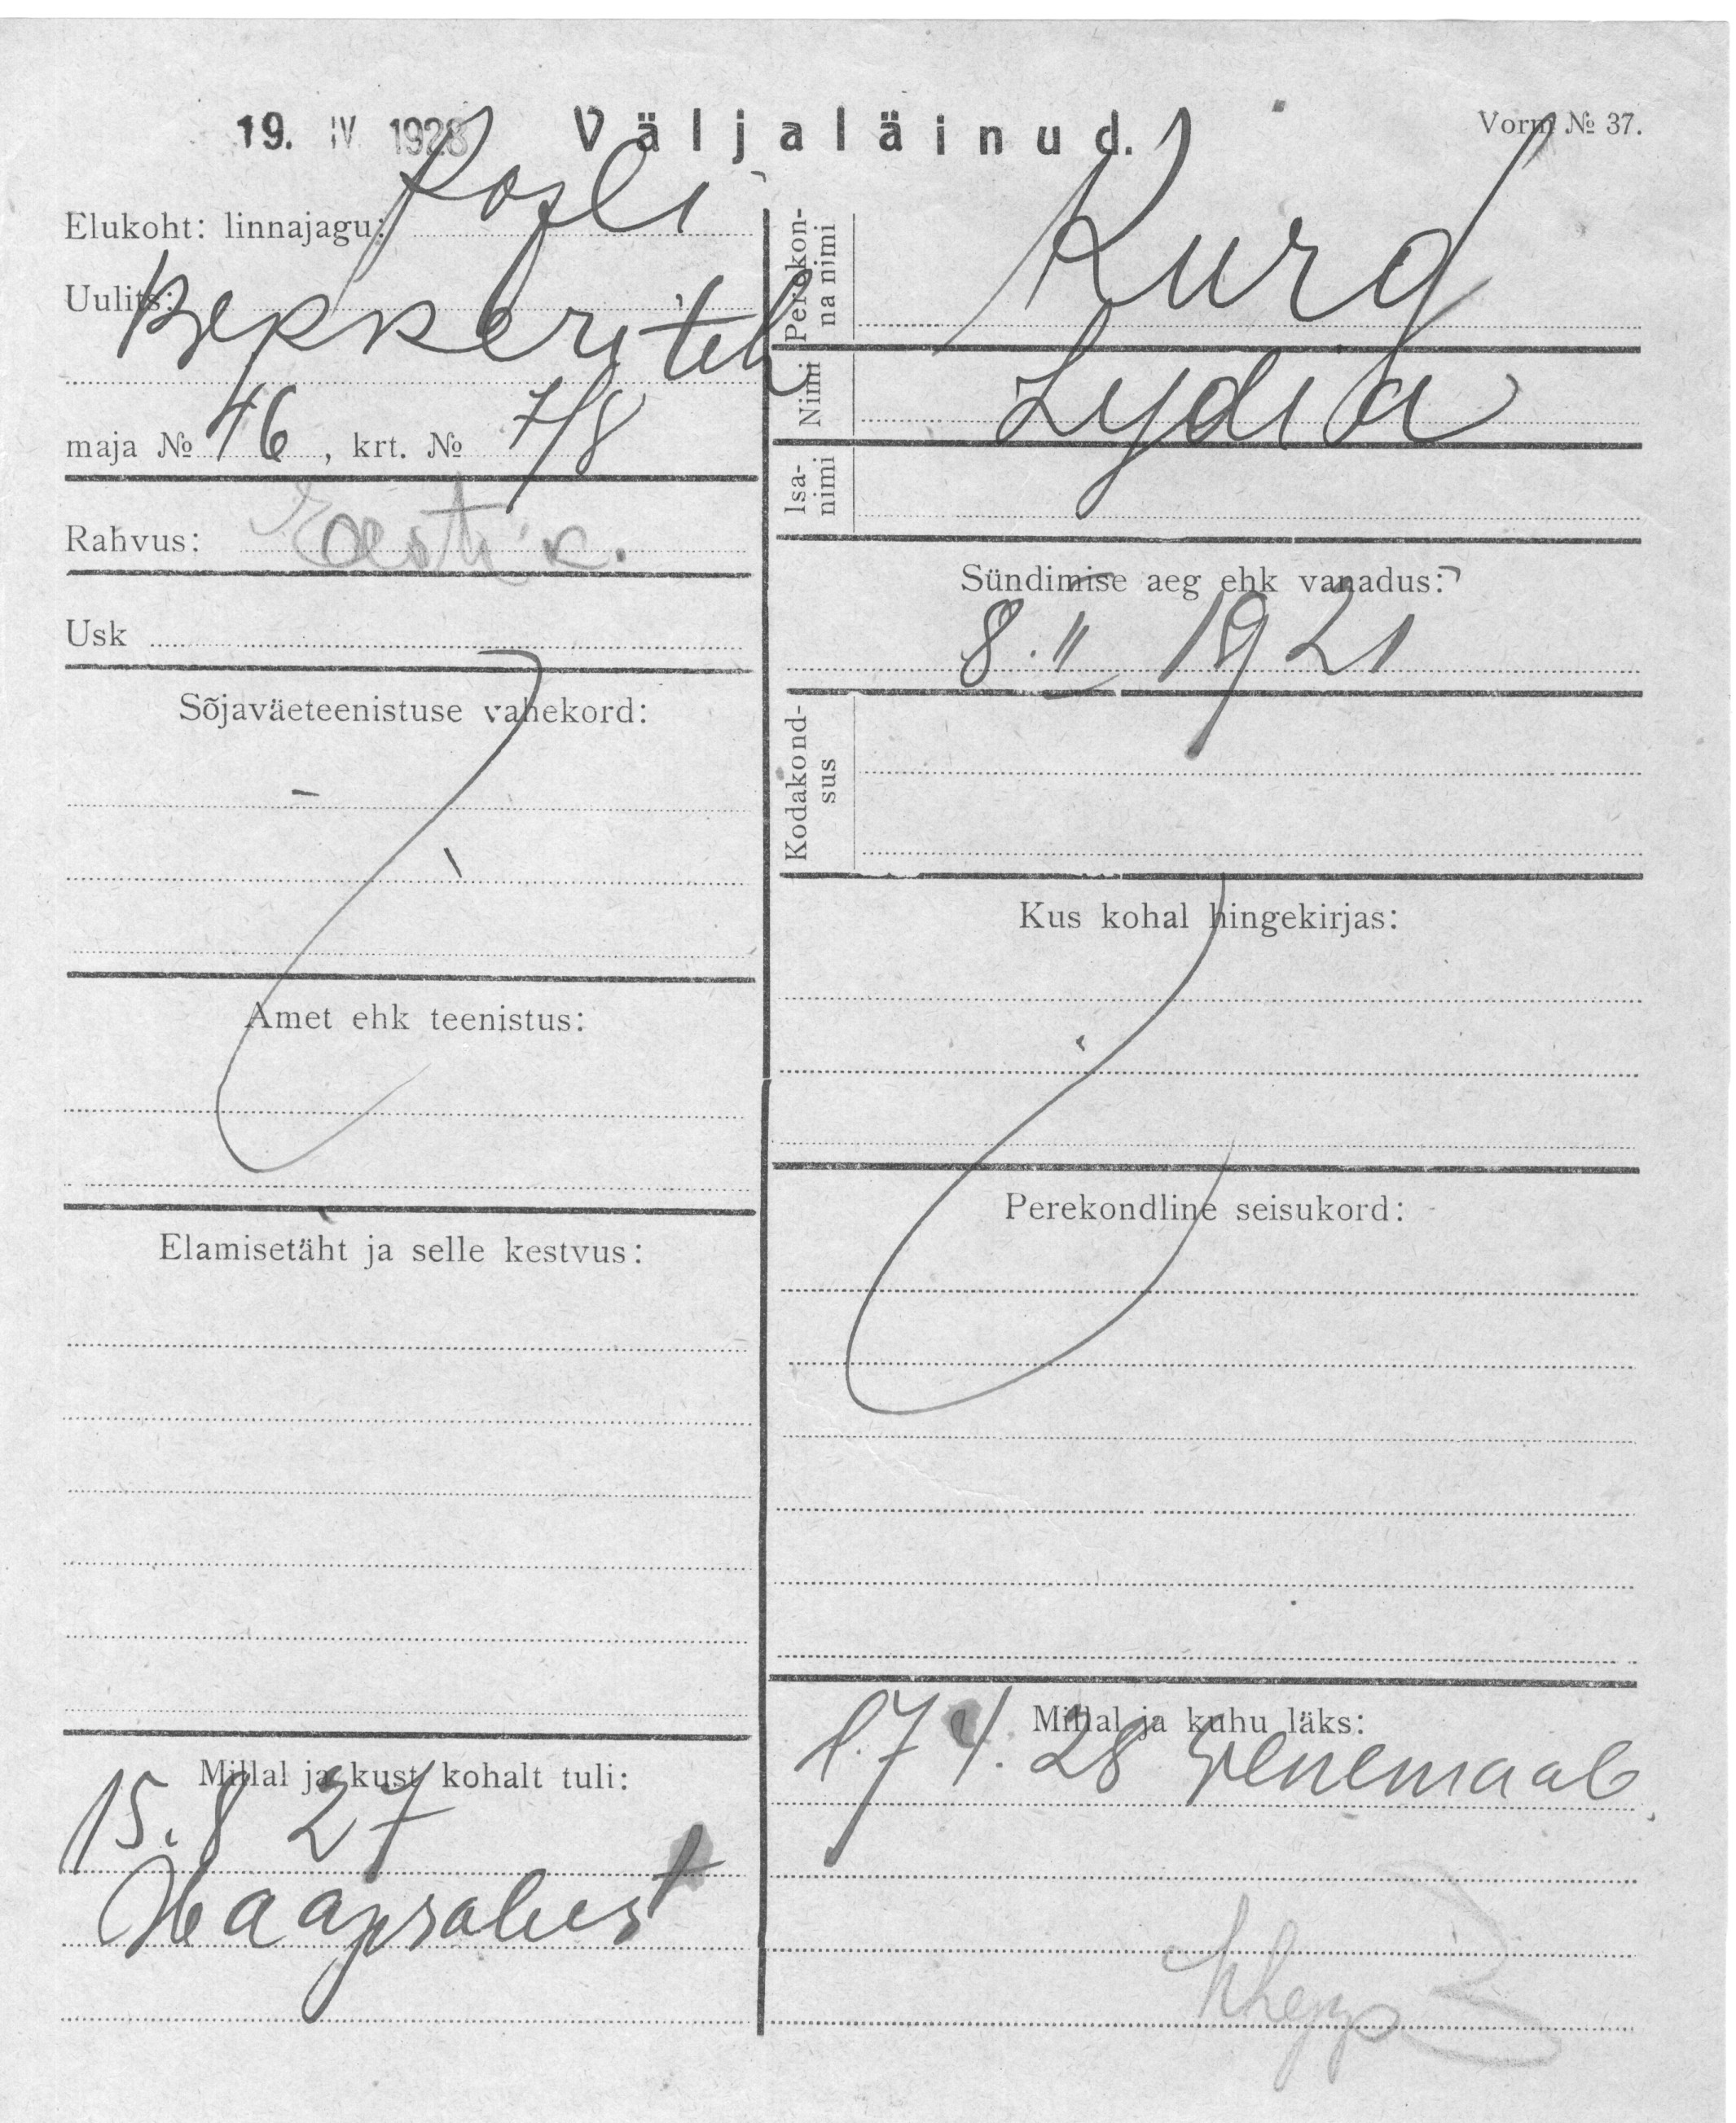 19. IV 1928 Väljaläinud. Vorm № 37.
Elukoht: linnajagu: Kopli
Uulits: Bekkeri teh
maja № 46, krt. № 7/8
Rahvus: Eesti k.
Usk
Sõjaväeteenistuse vahekord:
Amet ehk teenistus:
Elamisetäht ja selle kestvus:
Millal ja kust kohalt tuli:
15. 8 27
Haapsalust
Perekon-
na nimi Kurg
Nimi Lydia
Isa-
nimi
Sündimise aeg ehk vanadus:
8. II 1921
Kodakond-
sus
Kus kohal hingekirjas:
Perekondline seisukord:
Millal ja kuhu läks:
17 4. 28 Venemaale